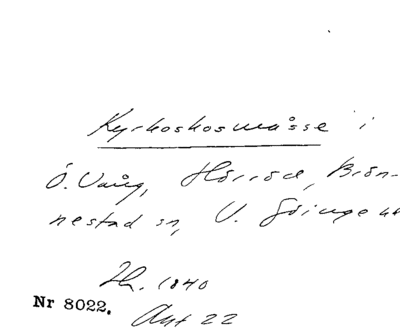 Kyrkoskosmässe i
Ö. Vång, Hörröd, Brön-
nestad sn, V. Göinge hd
Th. 1840
Nr 8022. Ant 22